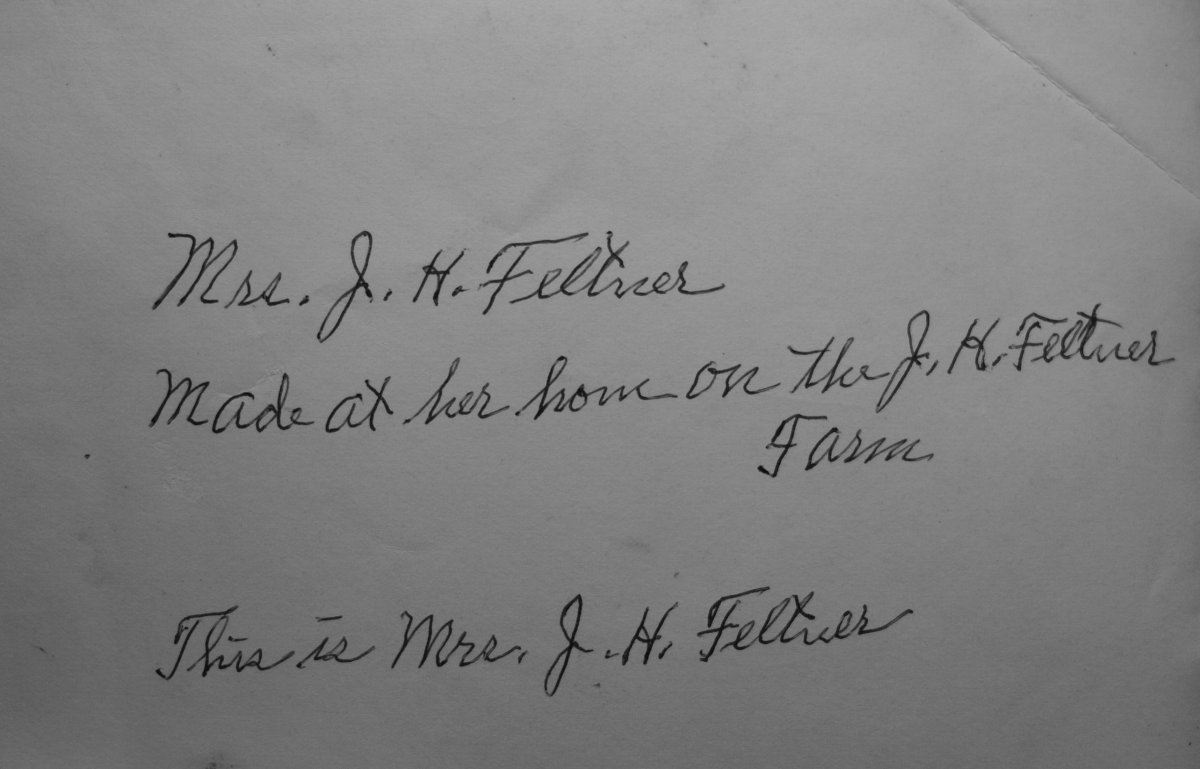 Mrs. J. H. Feltner
Made at her home on the J. H. Feltner
Farm
This is Mrs. J. H. Feltner